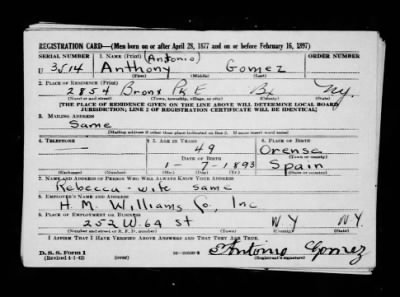 REGISTRATION CARD—(Men born on or after April 28, 1877 and on or before February 16, 1897)
SERIAL NUMBER 1. NAME (Print) (Antonio) ORDER NUMBER
U 3514 Anthony Gomez
(First) (Middle) (Last)
2. PLACE OF RESIDENCE (Print)
2854 Bronx PK E Bx NY.
(Number and street) (Town, township, village, or city) (County) (State)
[THE PLACE OF RESIDENCE GIVEN ON THE LINE ABOVE WILL DETERMINE LOCAL BOARD
JURISDICTION; LINE 2 OF REGISTRATION CERTIFICATE WILL BE IDENTICAL]
3. MAILING ADDRESS
Same
[Mailing address if other than place indicated on line 2. If same insert word same]
4. TELEPHONE 5. AGE IN YEARS 6. PLACE OF BIRTH
— 49 Orense
DATE OF BIRTH (Town or county)
1-7-1893 Spain
(Mo.) (Day) (Yr.) (State or country)
7. NAME AND ADDRESS OF PERSON WHO WILL ALWAYS KNOW YOUR ADDRESS
Rebecca - wife same
8. EMPLOYER'S NAME AND ADDRESS
H. M. Williams Co, Inc
9. PLACE OF EMPLOYMENT OR BUSINESS
252 W 64 st NY NY.
(Number and street or R. F. D. number) (Town) (County) (State)
I AFFIRM THAT I HAVE VERIFIED ABOVE ANSWERS AND THAT THEY ARE TRUE.
D. S. S. Form 1 Antonio Gomez
(Revised 4-1-42) (over) (Registrant's signature)